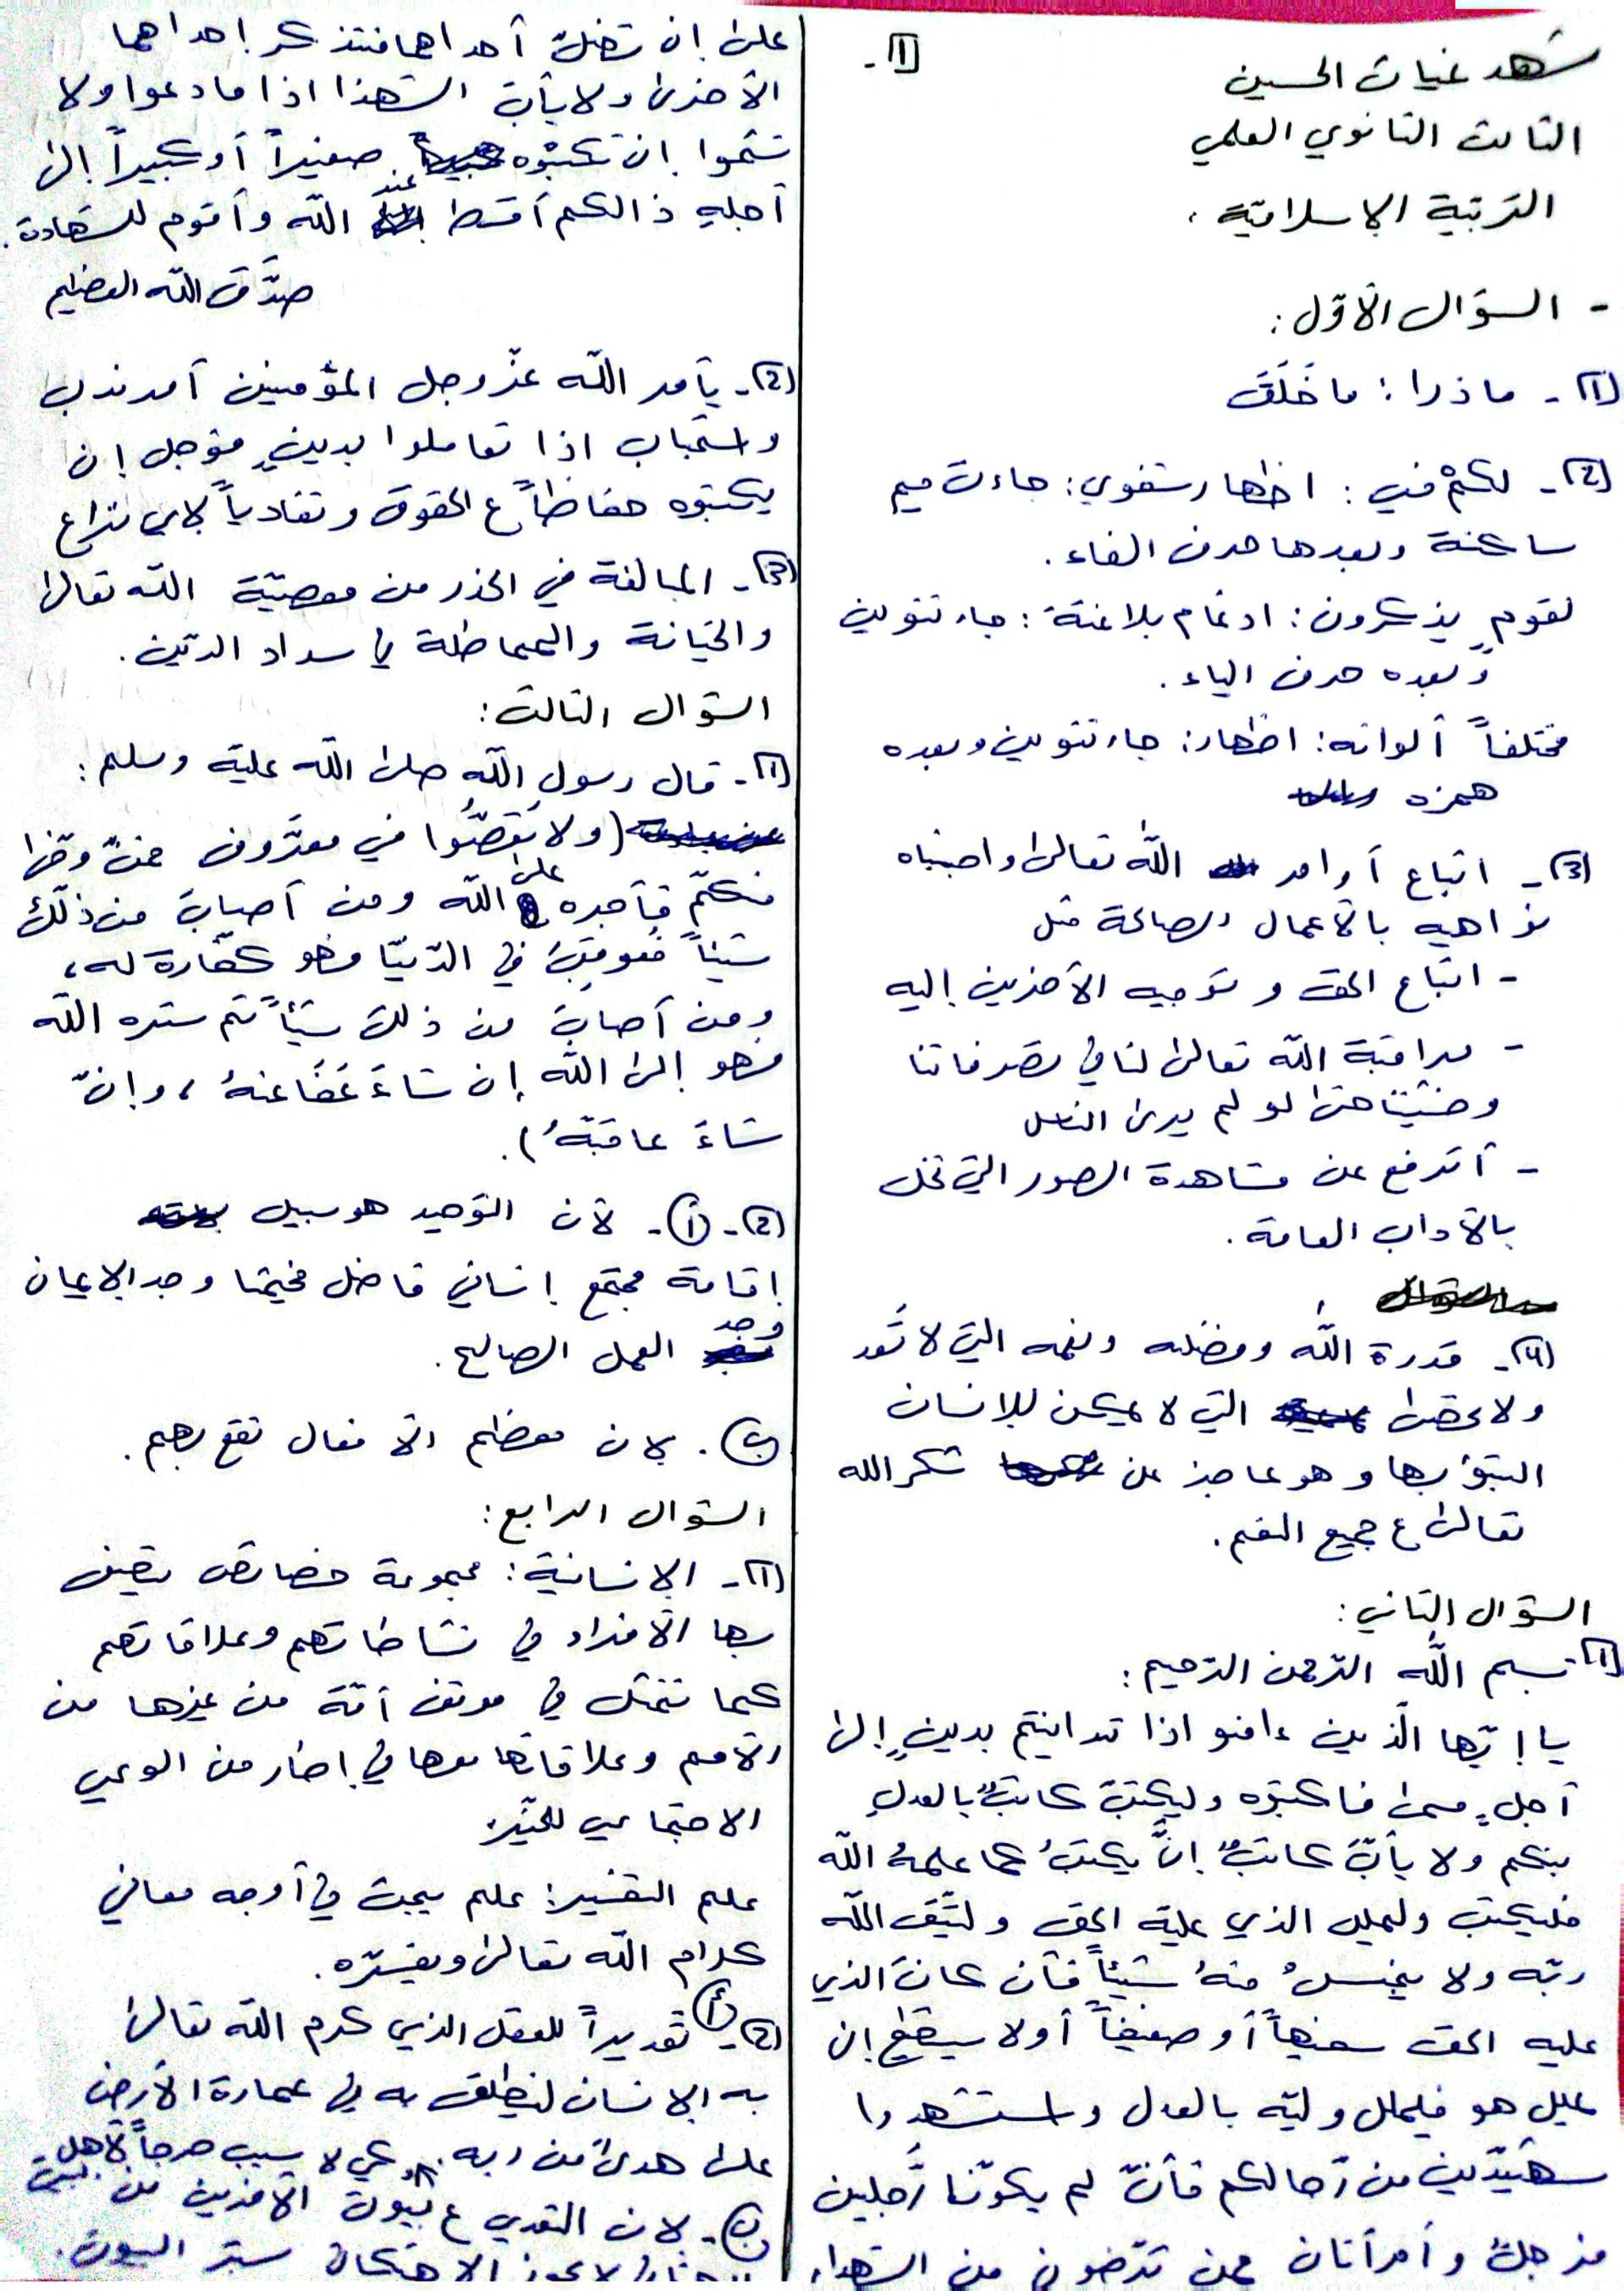 [1]-
شهد غياث الحسين
الثالث الثانوي العلمي
التربية الإسلامية.
- السؤال الأول:
(1)- ما ذرا: ما خَلَقَ
(2)- لكمْ في: اظهار شفوي: جاءت ميم
ساكنة وبعدها حرف الفاء.
لقومٍ يذكرون: ادغام بلا غنة: جاء تنوين
وبعده حرف الياء.
مختلفاً ألوانه: اظهار: جاء تنوين وبعده
همزه
(3)- اتباع أوامر الله تعالى واجتناب
نواهيه بالأعمال الصالحة مثل
- اتباع الحق وتوجيه الآخرين إليه
- مراقبة الله تعالى لنا في تصرفاتنا
حتى لو لم يرى الناس
- أترفع عن مشاهدة الصور التي تخل
بالآداب العامة.
(4)- قدرة الله وفضله ونعمه التي لا تُعد
ولا تحصى التي لا يمكن للإنسان
وهو عاجز عن شكر الله
تعالى ع جميع النعم.
السؤال الثاني:
(1)- بسم اللَّه الرّحمن الرّحيم:
يا إيّها الّذين ءامنو اذا تداينتم بدينٍ إلى
أجلٍ مسمى فاكتبوه وليكتبَ كاتبٌ بالعدلِ
بنكم ولا يأبَ كاتبٌ إنَّ يكتبُ كما علمهُ اللّه
فليكتب وليملل الذي علية الحق وليتّقِ اللّه
ربّه ولا يبخسُ منهُ شيئاً فأن كانَ الذي
عليه الحق سفيهاً أو ضعيفاً أو لا يستطيع إن
يملل هو فليملل وليّه بالعدل واستشهدوا
شهيّدين من رّجالكم فأنّ لم يكونّا رَّجلين
فرجلٌ وأمرأتان ممن ترّضون من الشهداء
على إن تضلّ أحداهما فتذكر إحداهما
الآخرى ولا يأبَ الشهدا اذا ما دعوا ولا
تسّموا إن تكتبّوه صغيراً أو كبيراً إلى
أجلهِ ذالكم أقسط عند اللّه وأقوم للشهادة.
صدَّقَ اللّه العظيم
(2)- يأمر اللّه عزّ وجل المؤمنين أمر ندب
واستحباب اذا تعاملوا بدينٍ مؤجل إن
يكتبوه حفاظاً ع الحقوق وتفادياً لاي نزاع
(3)- المبالغة في الحذر من معصيّة اللّه تعالى
والخيانة والمماطلة في سداد الدّين.
السّؤال الثالث:
(1)- قال رسولِ اللّهِ صلى اللّه علية وسلم:
(ولا تَعصُّوا في معرُّوف فمنّ وفى
منكمّ فأجره على اللّه ومن أصابَ من ذلّكَ
شيئاً فعوقِبَ في الدّنيّا فهو كفّارة له،
ومن أصابَ من ذلك شيئاً ثم ستره اللّه
فهو إلى اللّه إن شاءَ عَفَا عنهُ، وإنّ
شاءَ عاقبّهُ).
(2)- (أ)- لأن التوحيد هو سبيل
إقامة مجتمع إنساني فاضل فحيثما وجد الإيمان
وجد العمل الصالح.
(ب). لإن معظم الأفعال تقع بهم.
السّؤال الرابع:
(1)- الإنسانية: مجموعة خصائص يتصف
بها الأفراد في نشاطاتهم وعلاقاتهم
كما تتمثل في موقف أمّة من غيرها من
الأمم وعلاقاتها معها في إطار من الوعي
الاجتماعي للخيّر.
علم التفسير: علم يبحث في أوجه معاني
كلام اللّه تعالى ويفسّره.
(2)- (أ) تقديراً للعقل الذي كرم اللّه تعالى
به الإنسان لينطلق به في عمارة الأرض
على هدىً من ربه. كي لا يسبب حرجاً لأهل
(ب)- لان التعدي ع بيوت الآخرين من
ستر البيوت.